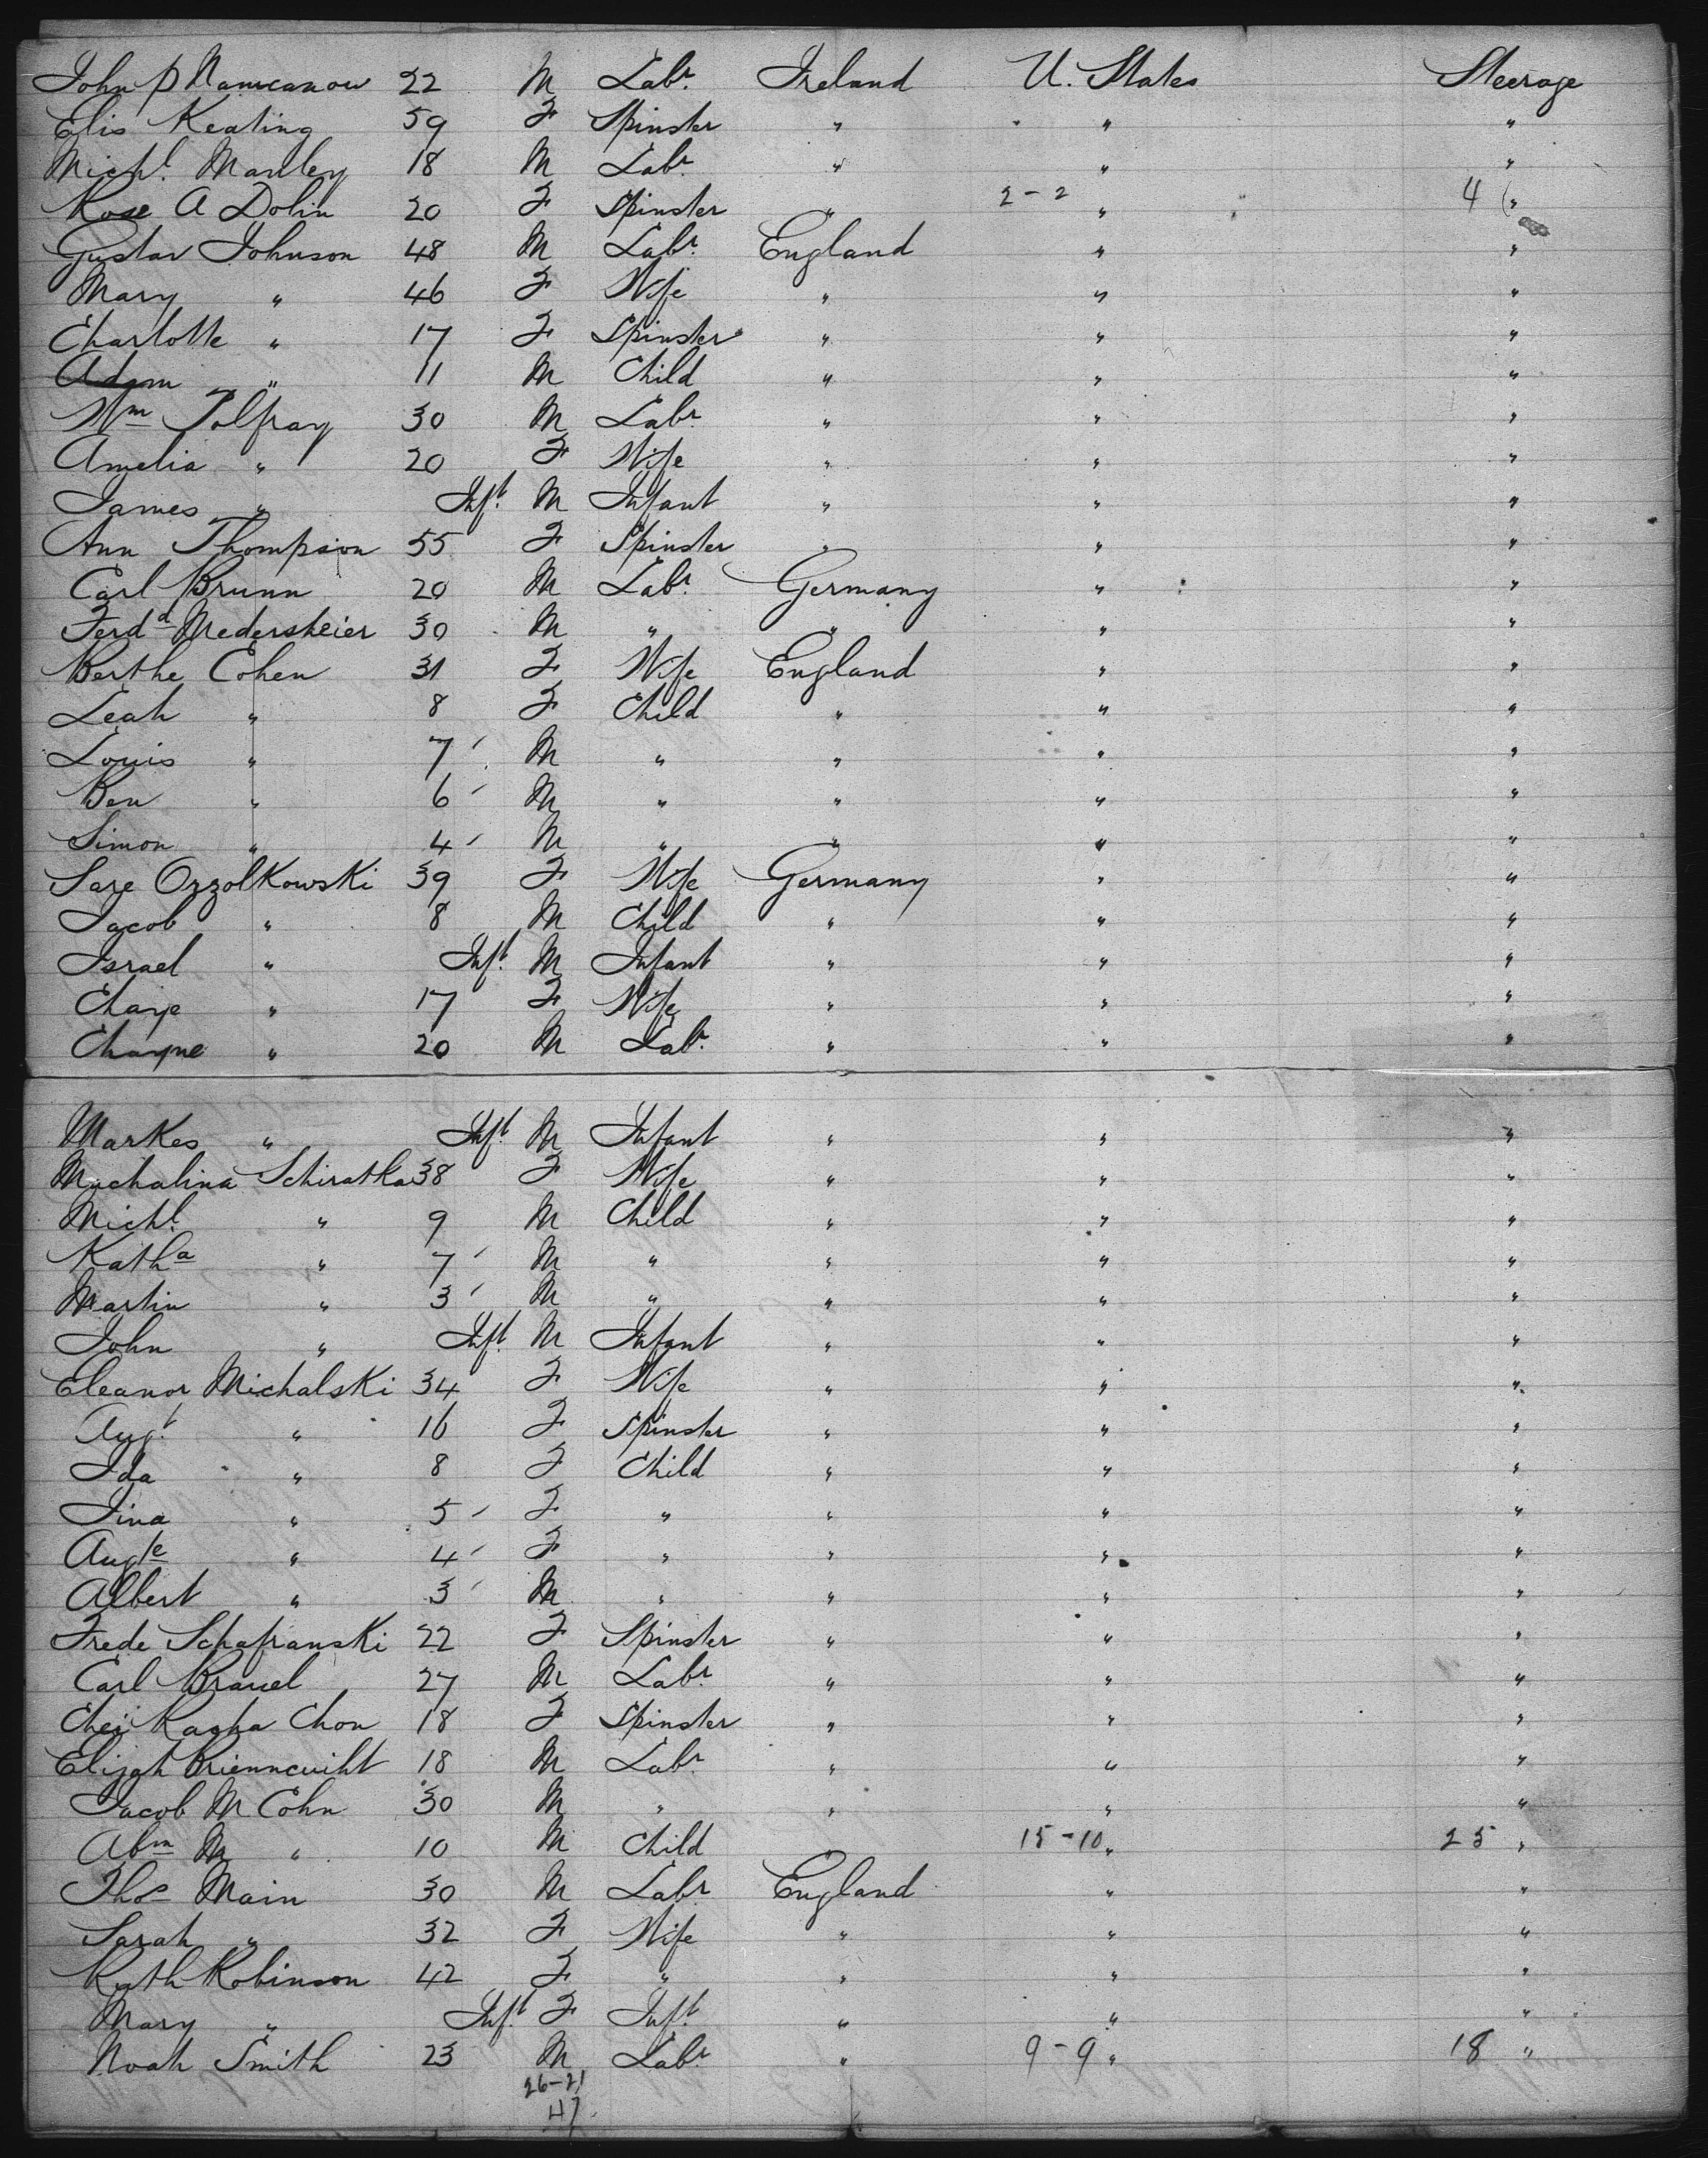 John P Namcanow 22 M Labr. Ireland U. States Steerage
Elis Keating 59 F Spinster " " "
Michl. Manley 18 M Labr. " " "
Rose A Dolin 20 F Spinster " 2-2 " 4 "
Gustav Johnson 48 M Labr. England " "
Mary " 46 F Wife " " "
Charlotte " 17 F Spinster " " "
Adam " 11 M Child " " "
Wm Tolfray 30 M Labr. " " "
Amelia " 20 F Wife " " "
James " Inft. M Infant " " "
Ann Thompson 55 F Spinster " " "
Carl Brunn 20 M Labr. Germany " "
Ferdd Medersheier 30 M " " " "
Berthe Cohen 31 F Wife England " "
Leah " 8 F Child " " "
Louis " 7 M " " " "
Ben " 6 M " " " "
Simon " 4 M " " " "
Sare Ozzolkowski 39 F Wife Germany " "
Jacob " 8 M Child " " "
Israel " Inft. M Infant " " "
Chaje " 17 F Wife " " "
Chayne " 20 M Labr. " " "
Markes " Inft. M Infant " " "
Machalina Schiratka 38 F Wife " " "
Michl. " 9 M Child " " "
Katha " 7 M " " " "
Martin " 3 M " " " "
John " Inft. M Infant " " "
Eleanor Michalski 34 F Wife " " "
Augt. " 16 F Spinster " " "
Ida " 8 F Child " " "
Tina " 5 F " " " "
Augte " 4 F " " " "
Albert " 3 M " " " "
Frede Schafranski 22 F Spinster " " "
Carl Brauel 27 M Labr. " " "
Chei Chon 18 F Spinster " " "
Elijah 18 M Labr. " " "
Jacob M Cohn 30 M " " " "
Abm M " 10 M Child 15-10 " 25 "
Thos Main 30 M Labr England " "
Sarah " 32 F Wife " " "
Kath Robinson 42 F " " " "
Mary " Inft. F Inft. " " "
Noah Smith 23 M Labr. " 9-9 " 18 "
26-21
47